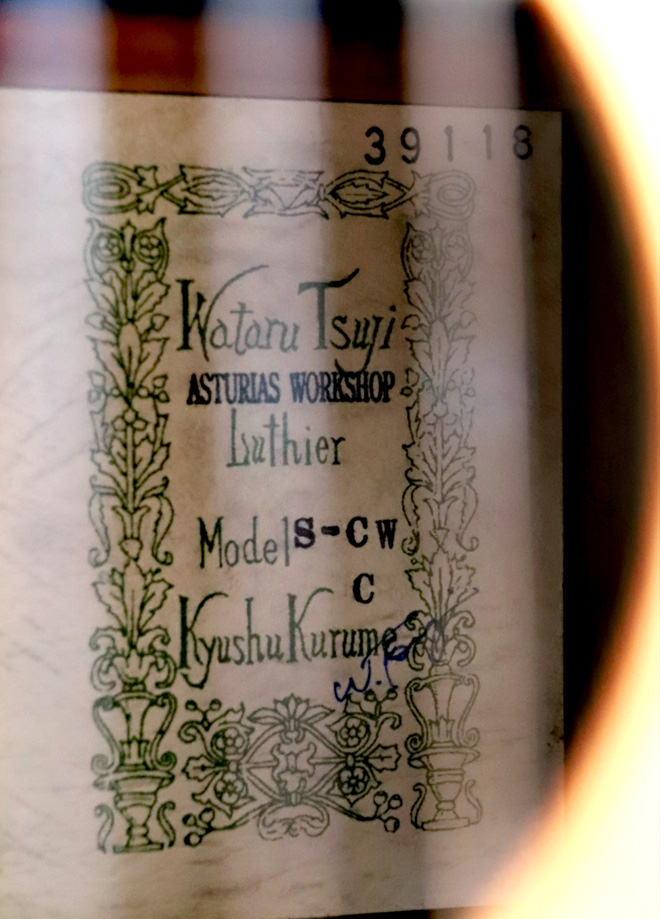 39118
Wataru Tsuji
ASTURIAS WORKSHOP
Luthier
Model S-CW
C
Kyushu Kurume